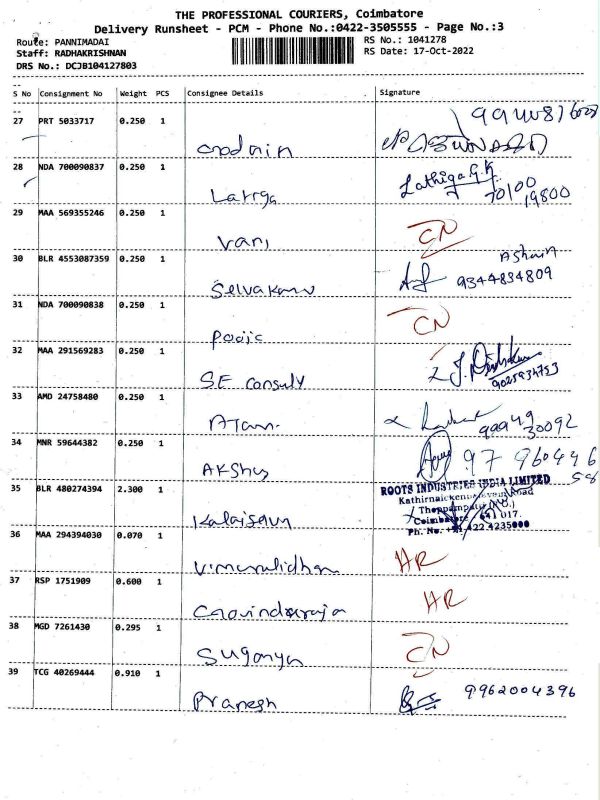 THE PROFESSIONAL COURIERS, Coimbatore
Delivery Runsheet - PCM - Phone No.:0422-3505555 - Page No.:3
Route: PANNIMADAI RS No.: 1041278
Staff: RADHAKRISHNAN RS Date: 17-Oct-2022
DRS No.: DCJB104127803
S No Consignment No Weight PCS Consignee Details Signature
27 PRT 5033717 0.250 1
28 NDA 700090837 0.250 1 Lathiga G.K
Latiga 70100
19800
29 MAA 569355246 0.250 1
Vani CN
30 BLR 4553087359 0.250 1 Ashwin
Selvakumar 9344834809
31 NDA 700090838 0.250 1 CN
Pooja
32 MAA 291569283 0.250 1
SE Consuly 9025934753
33 AMD 24758480 0.250 1
99949
30092
34 MNR 59644382 0.250 1 97 960446
Akshys 58
35 BLR 480274394 2.300 1 ROOTS INDUSTRIES INDIA LIMITED
Thoppampatti (P.O.)
Coimbatore - 641 017.
Kalaiselvn Ph. No. +91.422.4235000
36 MAA 294394030 0.070 1 HR
Vimuralidhan
37 RSP 1751909 0.600 1 HR
Govindaraja
38 MGD 7261430 0.295 1 CN
Suganya
39 TCG 40269444 0.910 1 9962004396
Pranesh